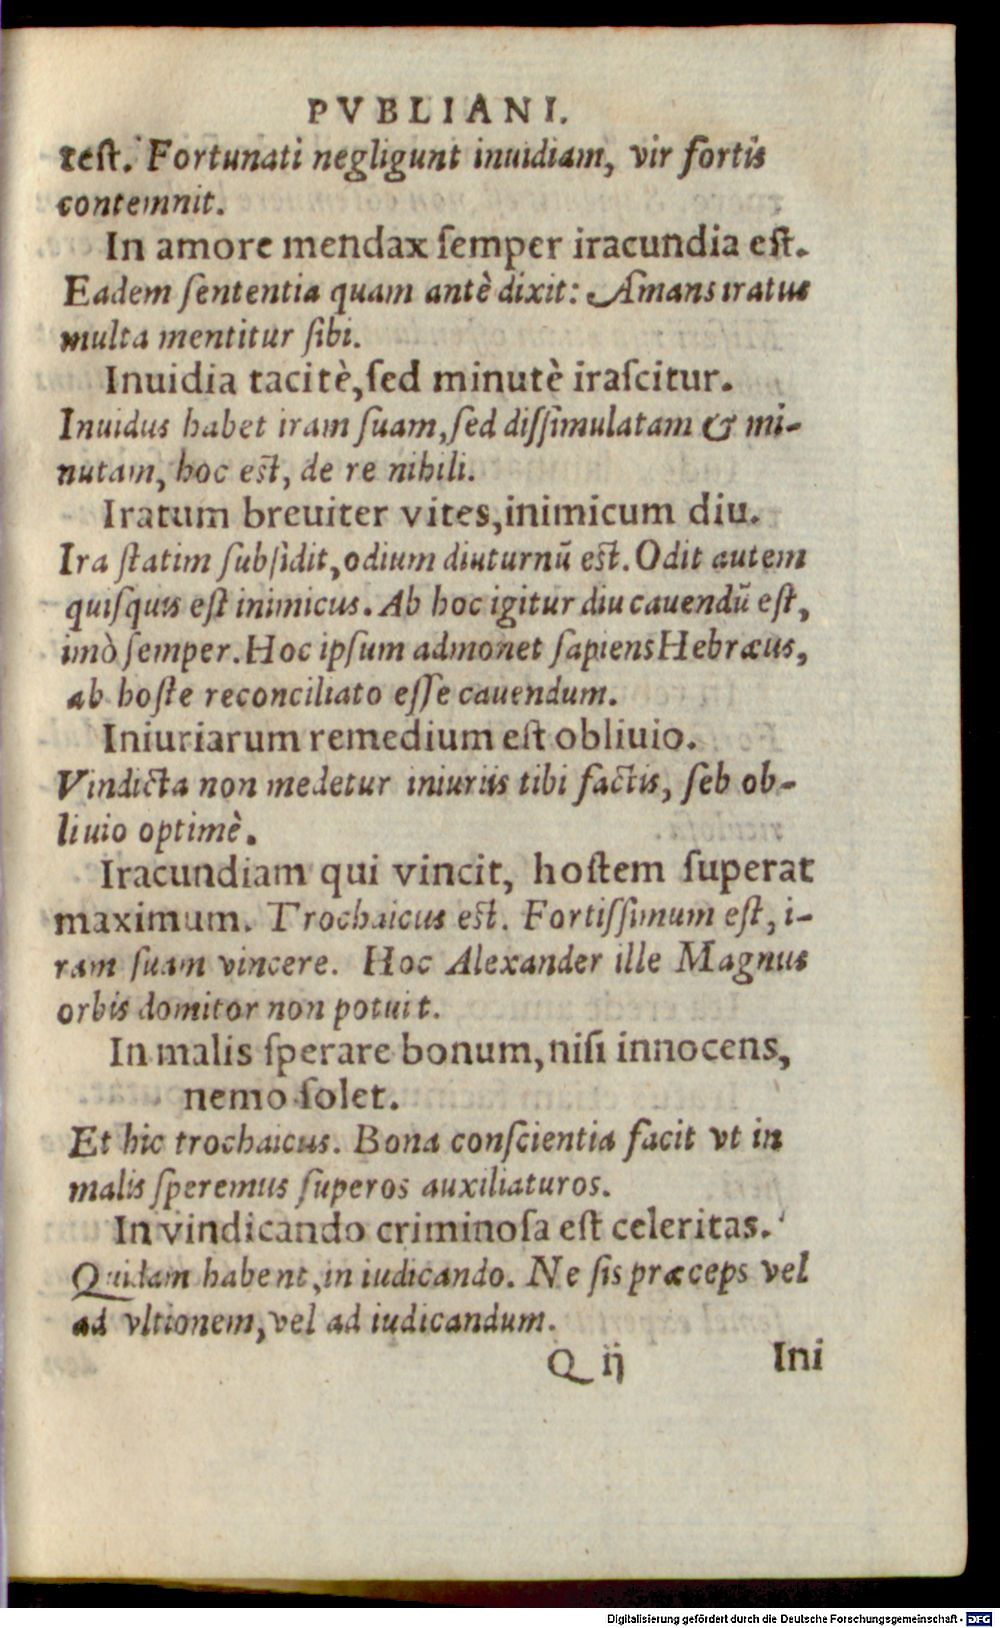 PVBLIANI.
test. Fortunati negligunt inuidiam, vir fortis
contemnit.
In amore mendax ſemper iracundia eſt.
Eadem ſententia quam antè dixit: Amans iratus
multa mentitur ſibi.
Inuidia tacitè, ſed minutè iraſcitur.
Inuidus habet iram ſuam, ſed diſſimulatam & mi-
nutam, hoc eſt, de re nihili.
Iratum breuiter vites, inimicum diu.
Ira ſtatim ſubſidit, odium diuturnũ eſt. Odit autem
quiſquis eſt inimicus. Ab hoc igitur diu cauendũ eſt,
imò ſemper. Hoc ipſum admonet ſapiens Hebræus,
ab hoſte reconciliato eſſe cauendum.
Iniuriarum remedium eſt obliuio.
Vindicta non medetur iniuriis tibi factis, ſeb ob-
liuio optimè.
Iracundiam qui vincit, hoſtem ſuperat
maximum. Trochaicus eſt. Fortiſſimum eſt, i-
ram ſuam vincere. Hoc Alexander ille Magnus
orbis domitor non potuit.
In malis ſperare bonum, niſi innocens,
nemo ſolet.
Et hic trochaicus. Bona conſcientia facit vt in
malis ſperemus ſuperos auxiliaturos.
In vindicando criminoſa eſt celeritas.
Quidam habent, in iudicando. Ne ſis præceps vel
ad vltionem, vel ad iudicandum.
Q ij Ini
Digitalisierung gefördert durch die Deutsche Forschungsgemeinschaft - DFG